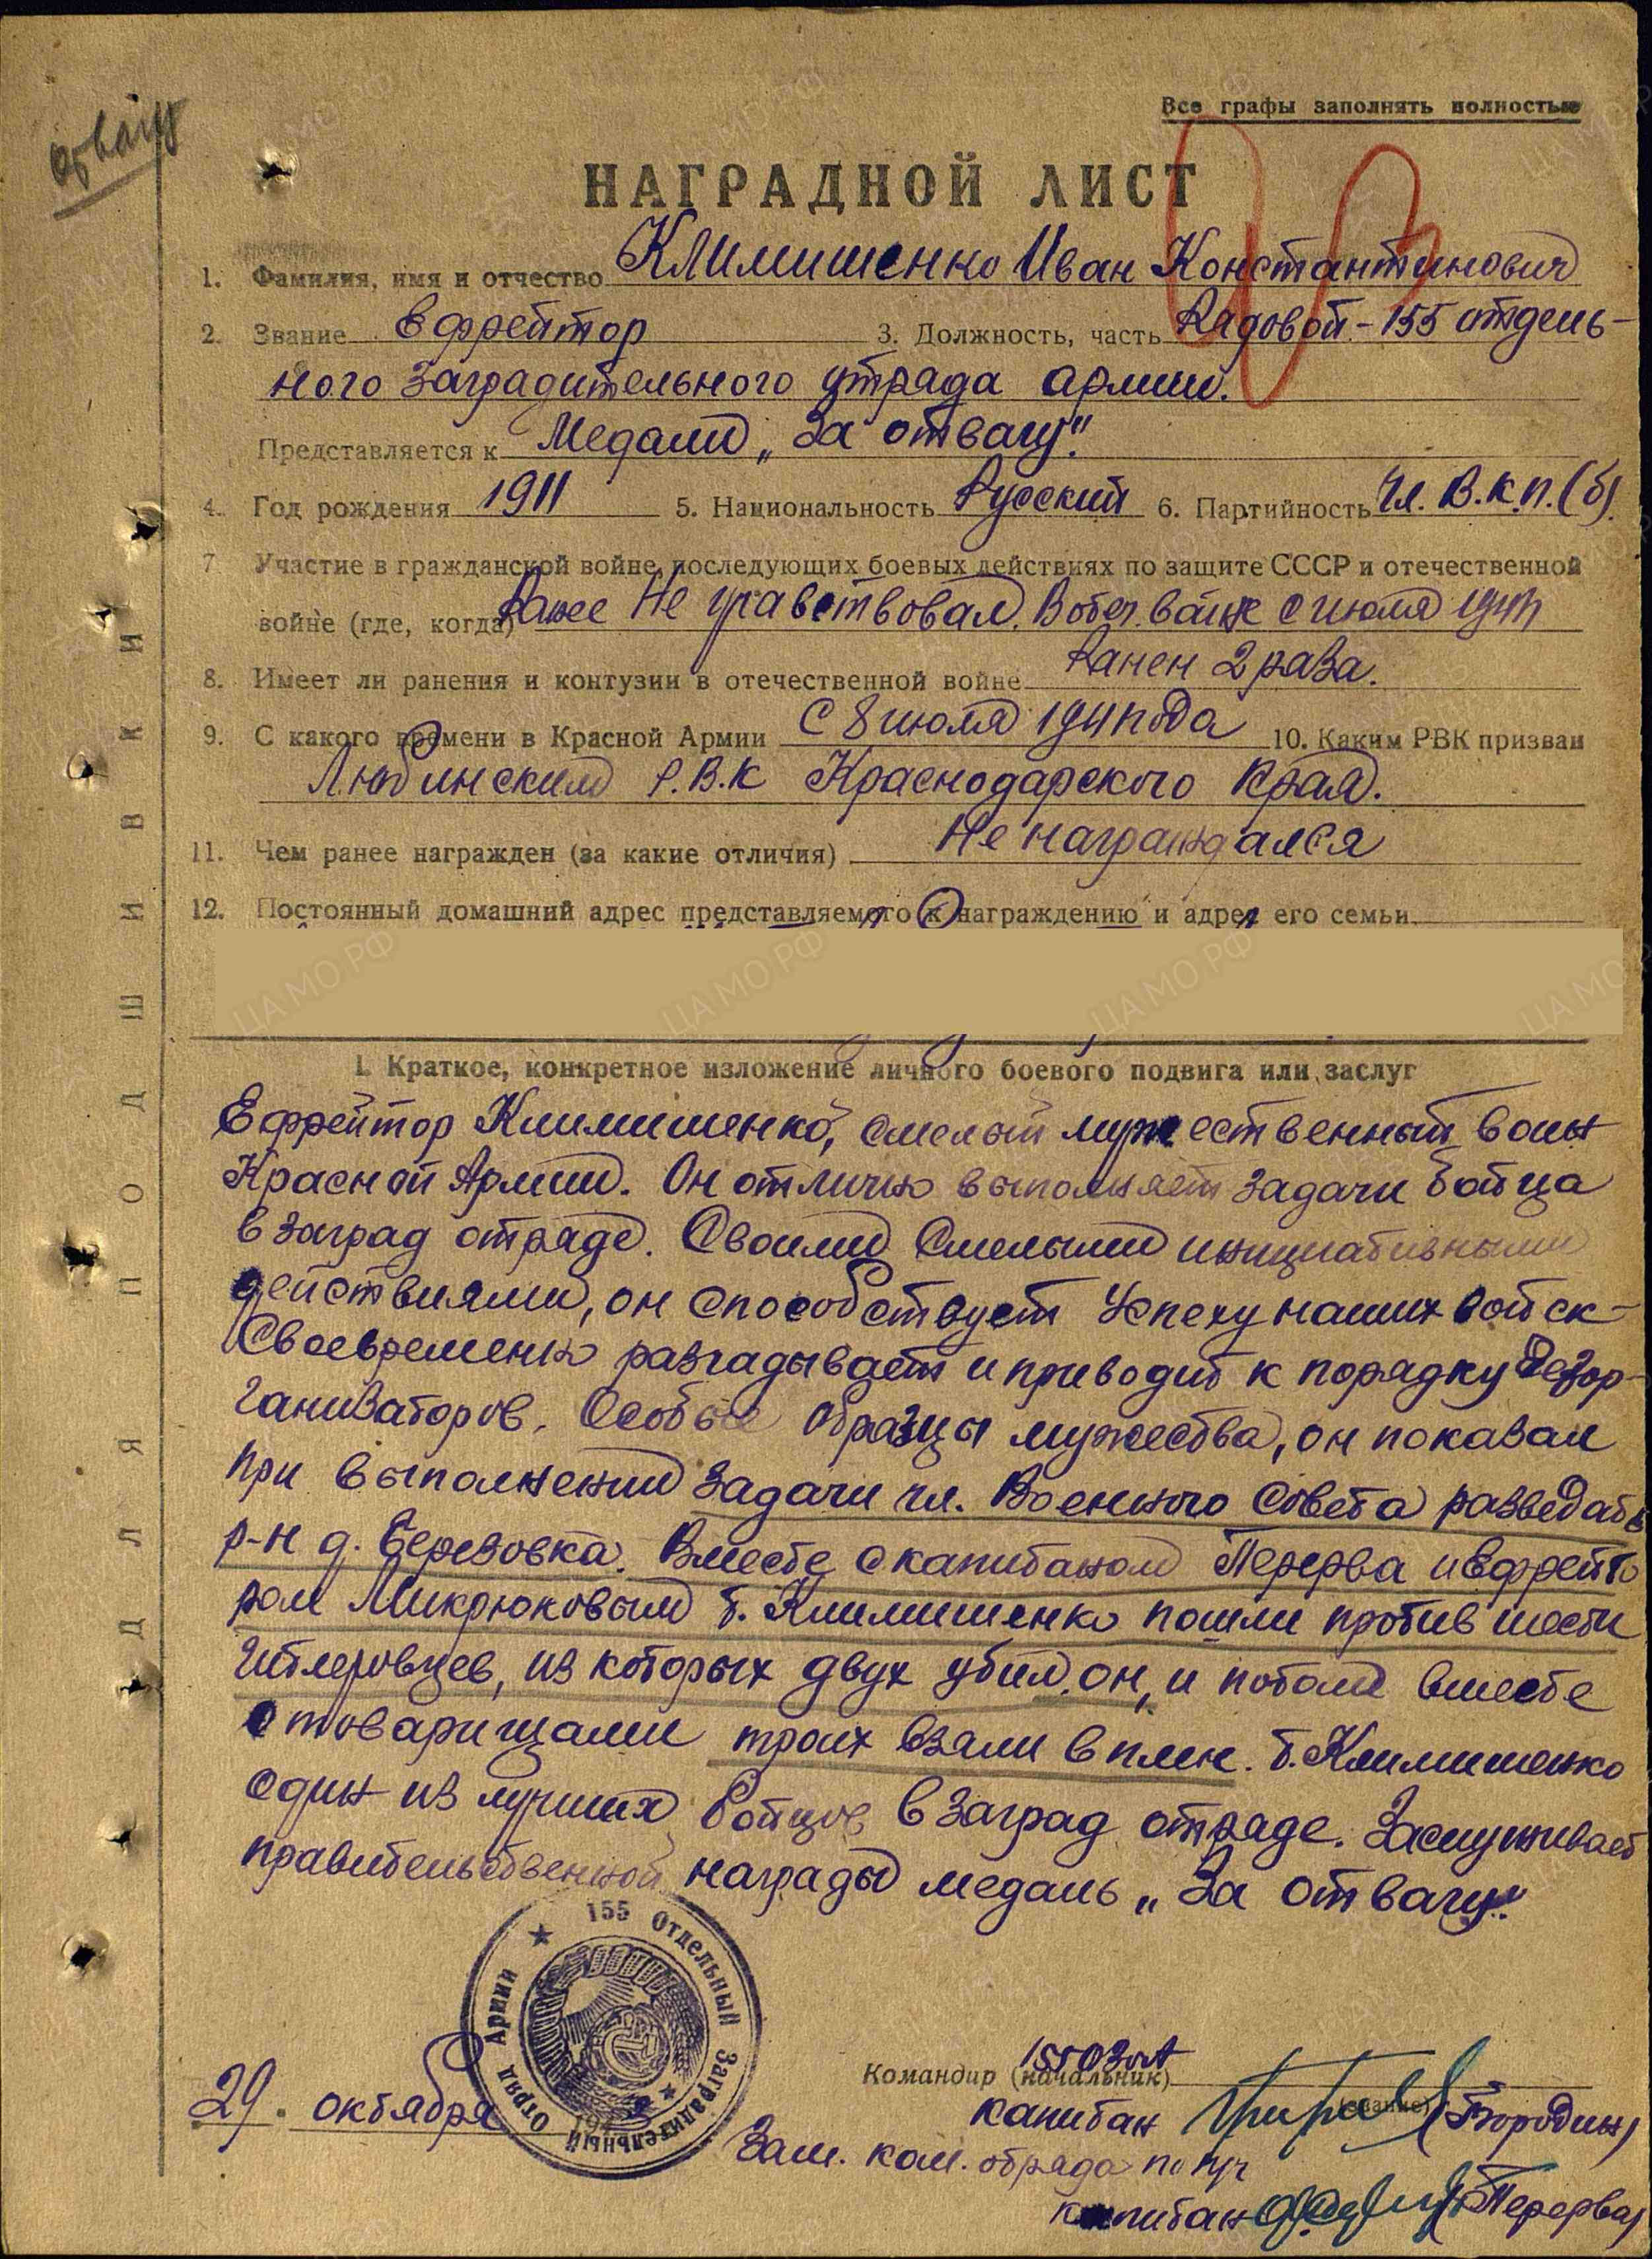 Отвагу
Все графы заполнять полностью
НАГРАДНОЙ ЛИСТ
1. Фамилия, имя и отчество Климишенко Иван Константинович
2. Звание Ефрейтор 3. Должность, часть Рядовой - 155 отдель-
ного заградительного отряда армии.
Представляется к Медали „За отвагу".
4. Год рождения 1911 5. Национальность Русский 6. Партийность Чл. В.К.П.(б).
7. Участие в гражданской войне, последующих боевых действиях по защите СССР и отечественной
войне (где, когда) Ранее не участвовал. В отеч. войне с июля 1941
8. Имеет ли ранения и контузии в отечественной войне Ранен 2 раза.
9. С какого времени в Красной Армии С 8 июля 1941 года 10. Каким РВК призван
Р.В.К Краснодарского Края.
11. Чем ранее награжден (за какие отличия) Не награждался
12. Постоянный домашний адрес представляемого к награждению и адрес его семьи
I. Краткое, конкретное изложение личного боевого подвига или заслуг
Ефрейтор Климишенко, смелый мужественный воин
Красной Армии. Он отлично выполняет задачи бойца
в заград отряде. Своими смелыми инициативными
действиями, он способствует успеху наших войск-
Своевременно разгадывает и приводит к порядку дезор-
ганизаторов. Особые образцы мужества, он показал
при выполнении задачи чл. Военного Совета разведать
р-н д. Березовка. Вместе с капитаном Перерва и Ефрейто
ром Микрюковым т. Климишенко пошли против шести
гитлеровцев, из которых двух убил он, и потом вместе
с товарищами троих взяли в плен. т. Климишенко
один из лучших бойцов в заград отряде. Заслуживает
правительственной награды медаль „За отвагу".
155 Отдельный Заградительный Отряд Армии
194
29. октября
Командир (начальник) 155 ОЗОА
капитан (Бородин)
(звание)
Зам. ком. отряда по
капитан (Перерва)
ДЛЯ ПОДШИВКИ
ЦАМО РФ